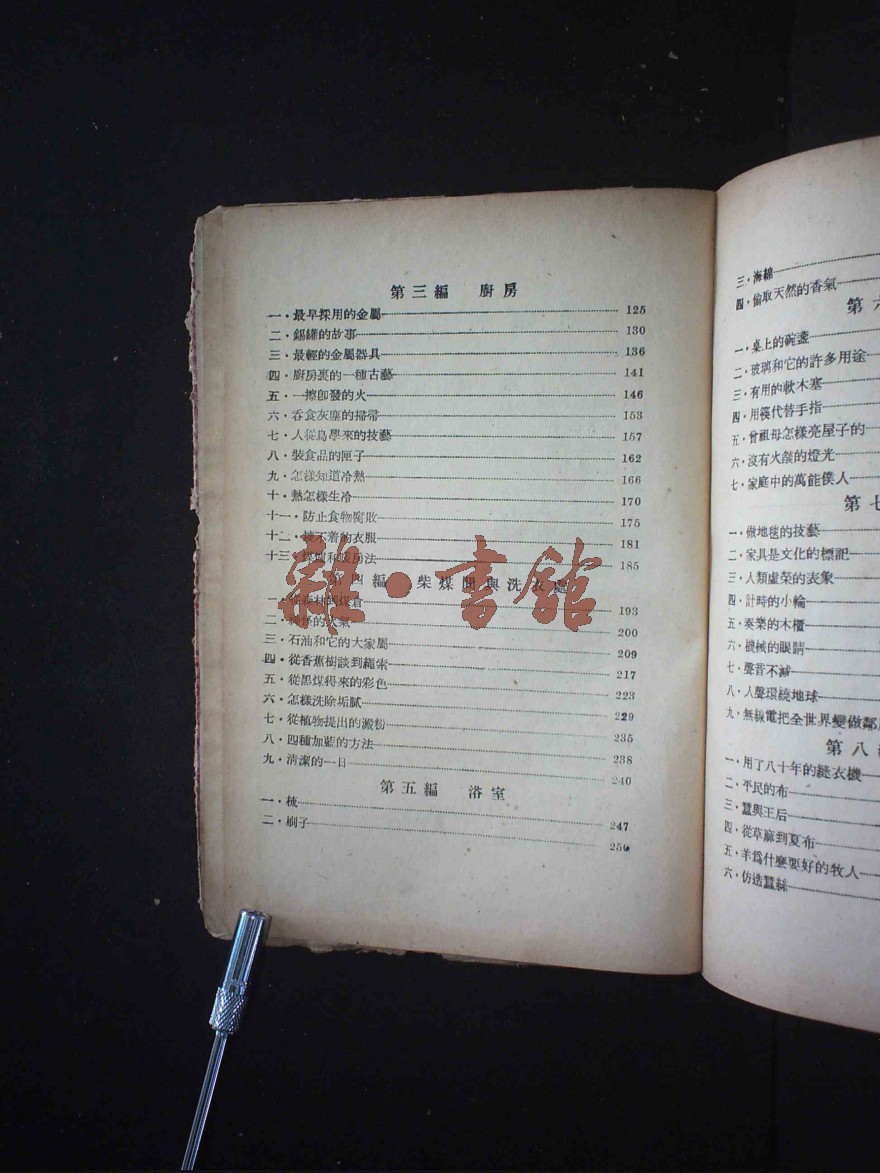 第三編　廚房
一・最早採用的金屬 125
二・錫罐的故事 130
三・最輕的金屬器具 136
四・廚房裏的一種古藝 141
五・一擦卽發的火 146
六・吞食灰塵的掃帚 153
七・人從鳥學來的技藝 157
八・裝食品的匣子 162
九・怎樣知道冷熱 166
十・熱怎樣生冷 170
十一・防止食物腐敗 175
十二・燒不着的衣服 181
十三・和暖房法 185
第四編　柴煤間與洗衣處
一・從森林到煤倉 193
二・的煤氣 200
三・石油和它的大家屬 209
四・從香蕉樹談到繩索 217
五・從黑煤得來的彩色 223
六・怎樣洗除垢膩 229
七・從植物提出的澱粉 235
八・四種加藍的方法 238
九・清潔的一日 240
第五編　浴室
一・梳 247
二・刷子 250
雜・書館
三・海綿
四・偷取天然的香氣
第六
一・桌上的碗盞
二・玻璃和它的許多用途
三・有用的軟木塞
四・用筷代替手指
五・曾祖母怎樣亮屋子的
六・沒有火燄的燈光
七・家庭中的萬能僕人
第七
一・做地毯的技藝
二・家具是文化的標記
三・人類虛榮的表象
四・計時的小輪
五・奏樂的木櫃
六・機械的眼睛
七・聲音不滅
八・人聲環繞地球
九・無線電把全世界變做鄰
第八
一・用了八十年的縫衣機
二・平民的布
三・蠶與王后
四・從草麻到夏布
五・羊爲什麼要好的牧人
六・仿造蠶絲